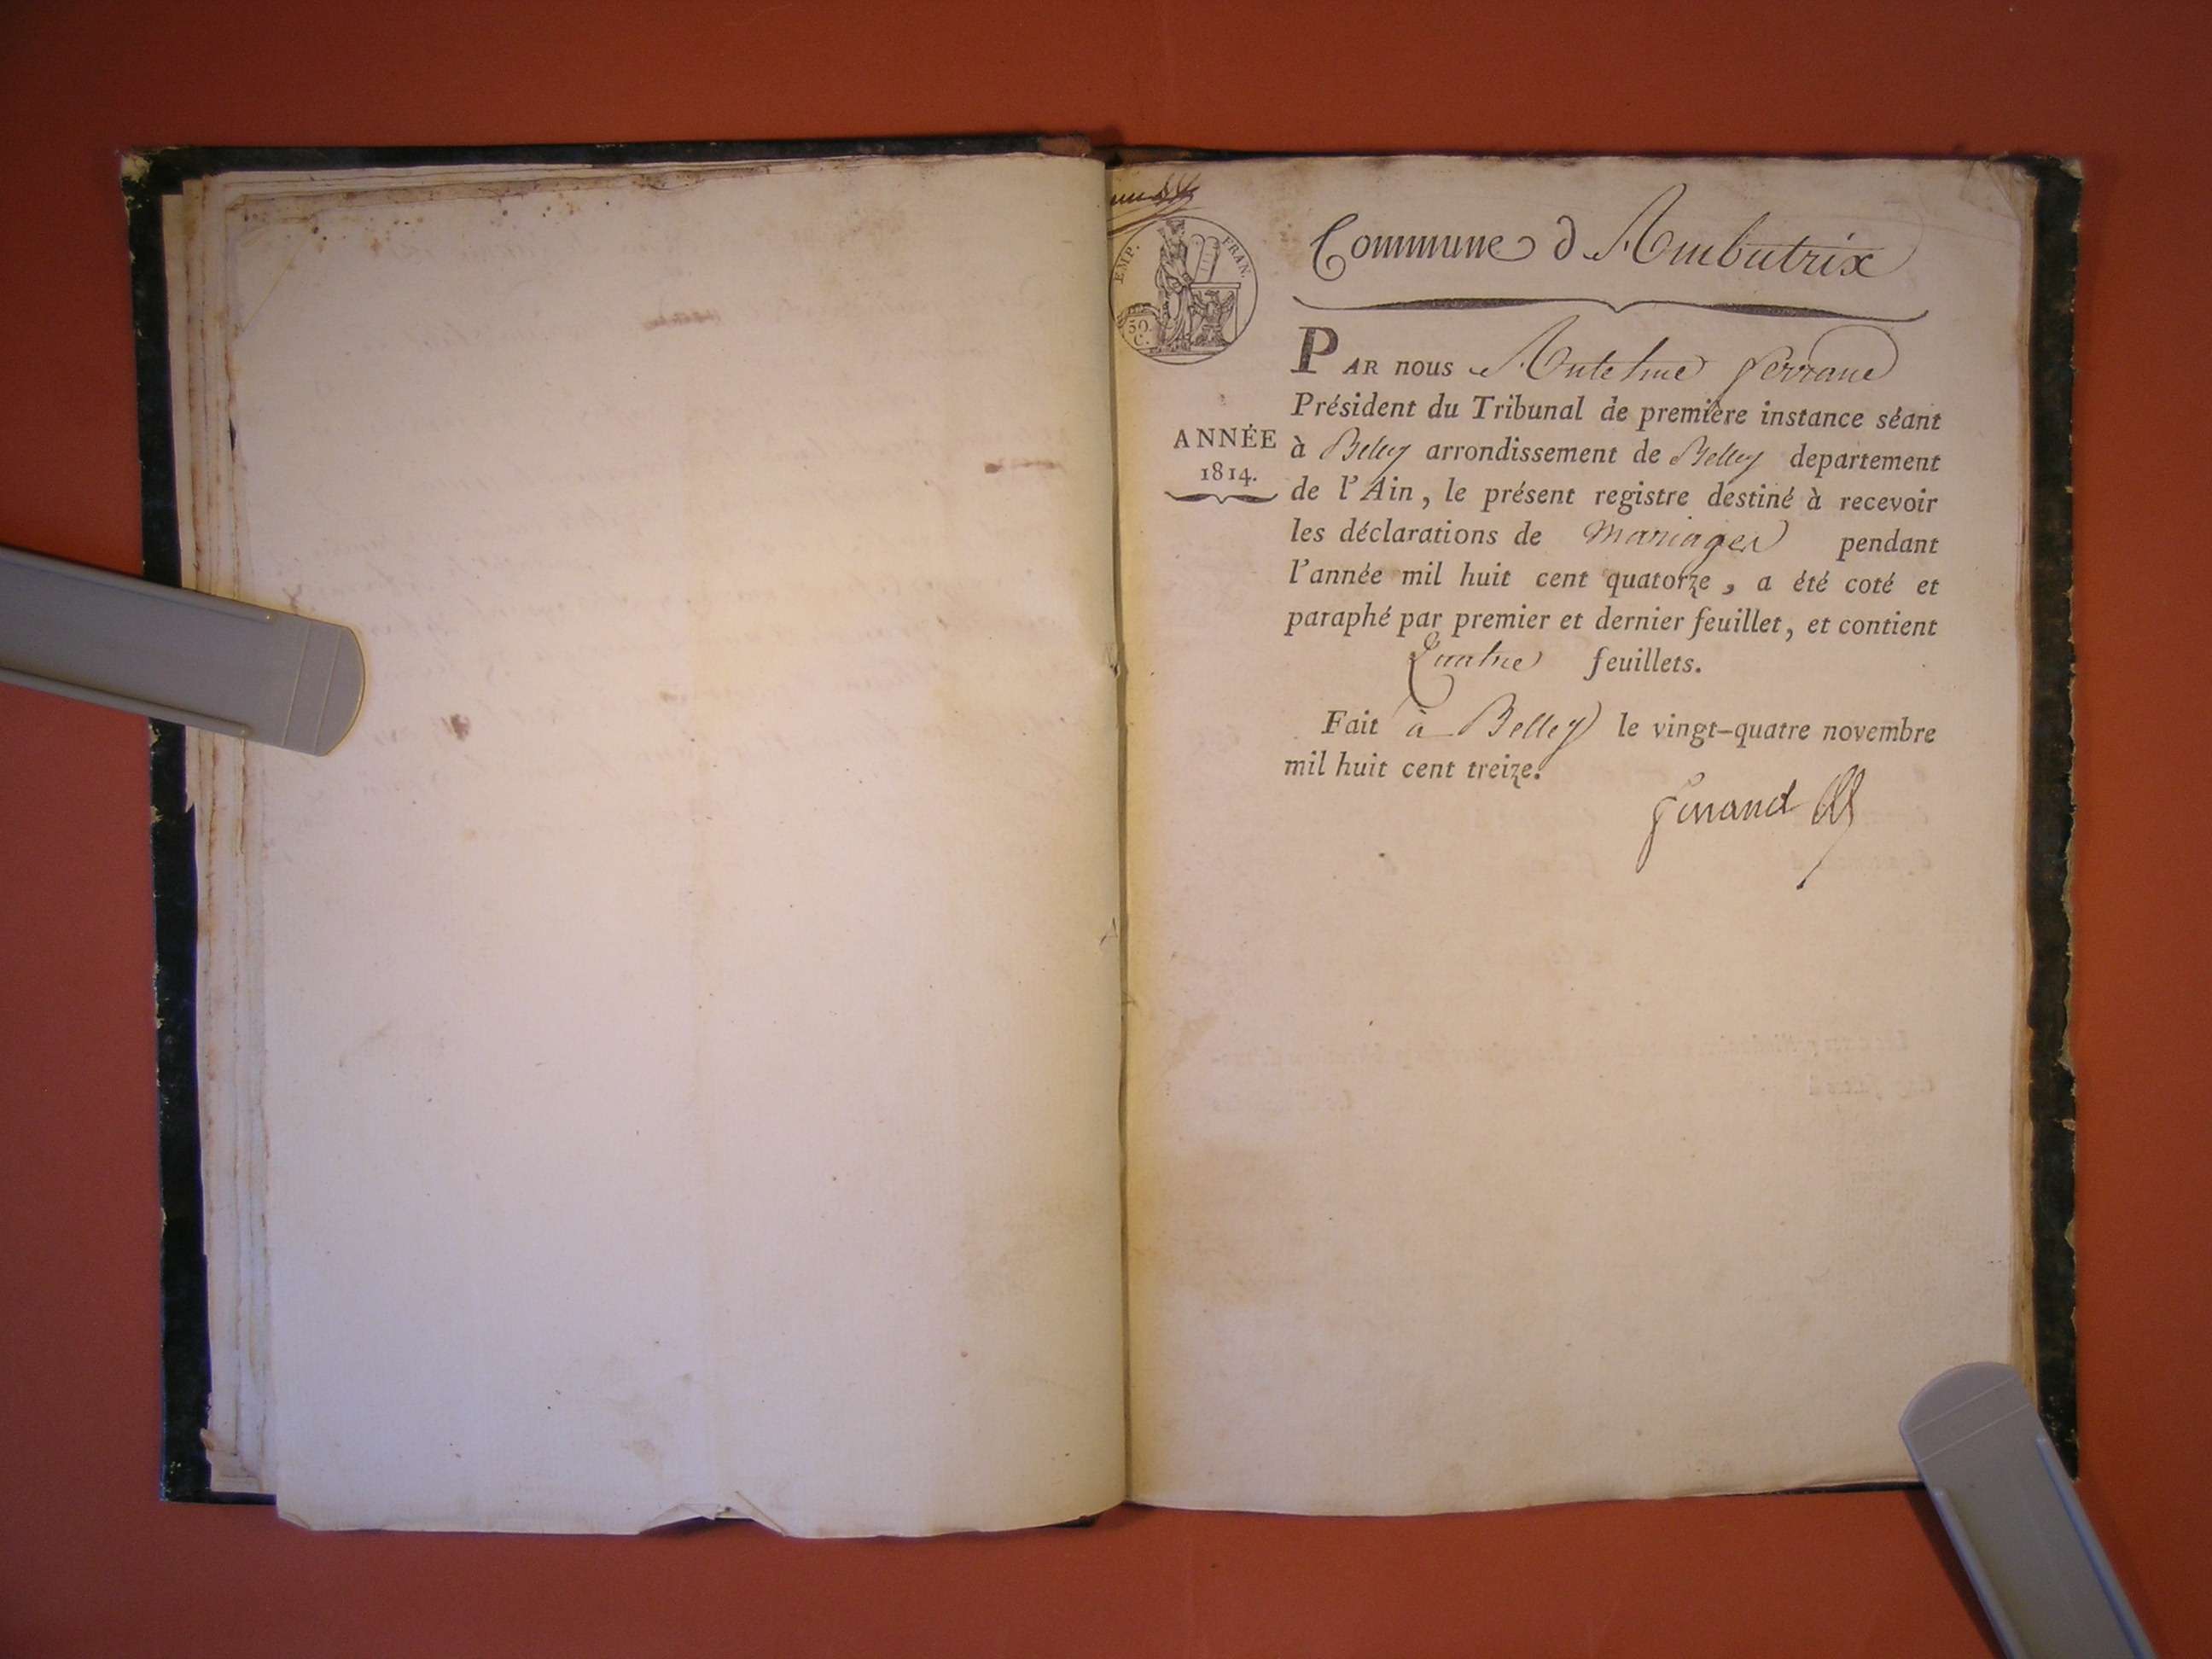 EMP. FRAN.
50. C.
Commune d'Ambutrix
PAR nous Antelme ferrand
Président du Tribunal de première instance séant
ANNÉE
1814.
à Belley arrondissement de Belley departement
de l'Ain, le présent registre destiné à recevoir
les déclarations de Mariages pendant
l'année mil huit cent quatorze, a été coté et
paraphé par premier et dernier feuillet, et contient
Quatre feuillets.
Fait à Belley le vingt-quatre novembre
mil huit cent treize.
ferrand